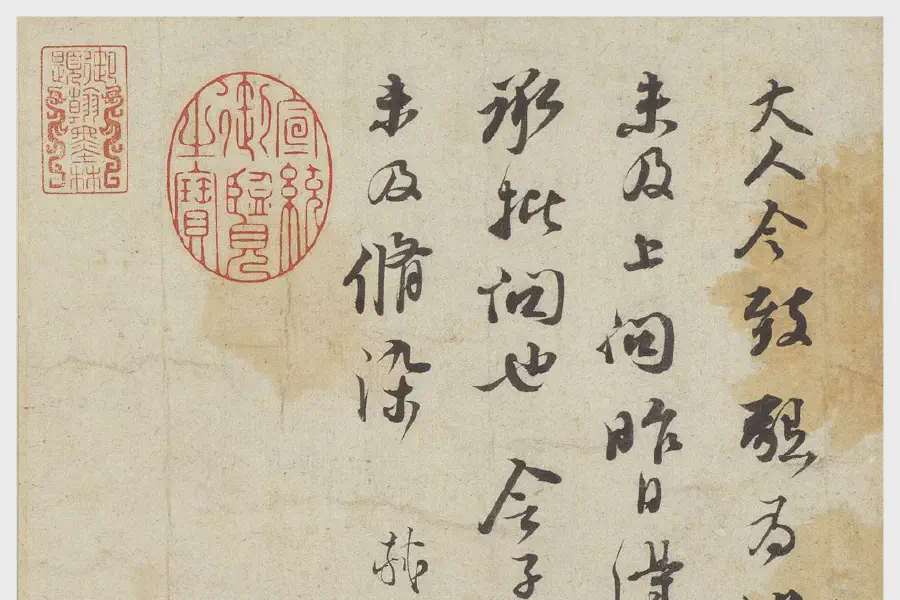 大人令致懇為
未及上問昨日得
承批問也 令子
未及脩染 軾
宣統御覽之寶
御題翰墨林